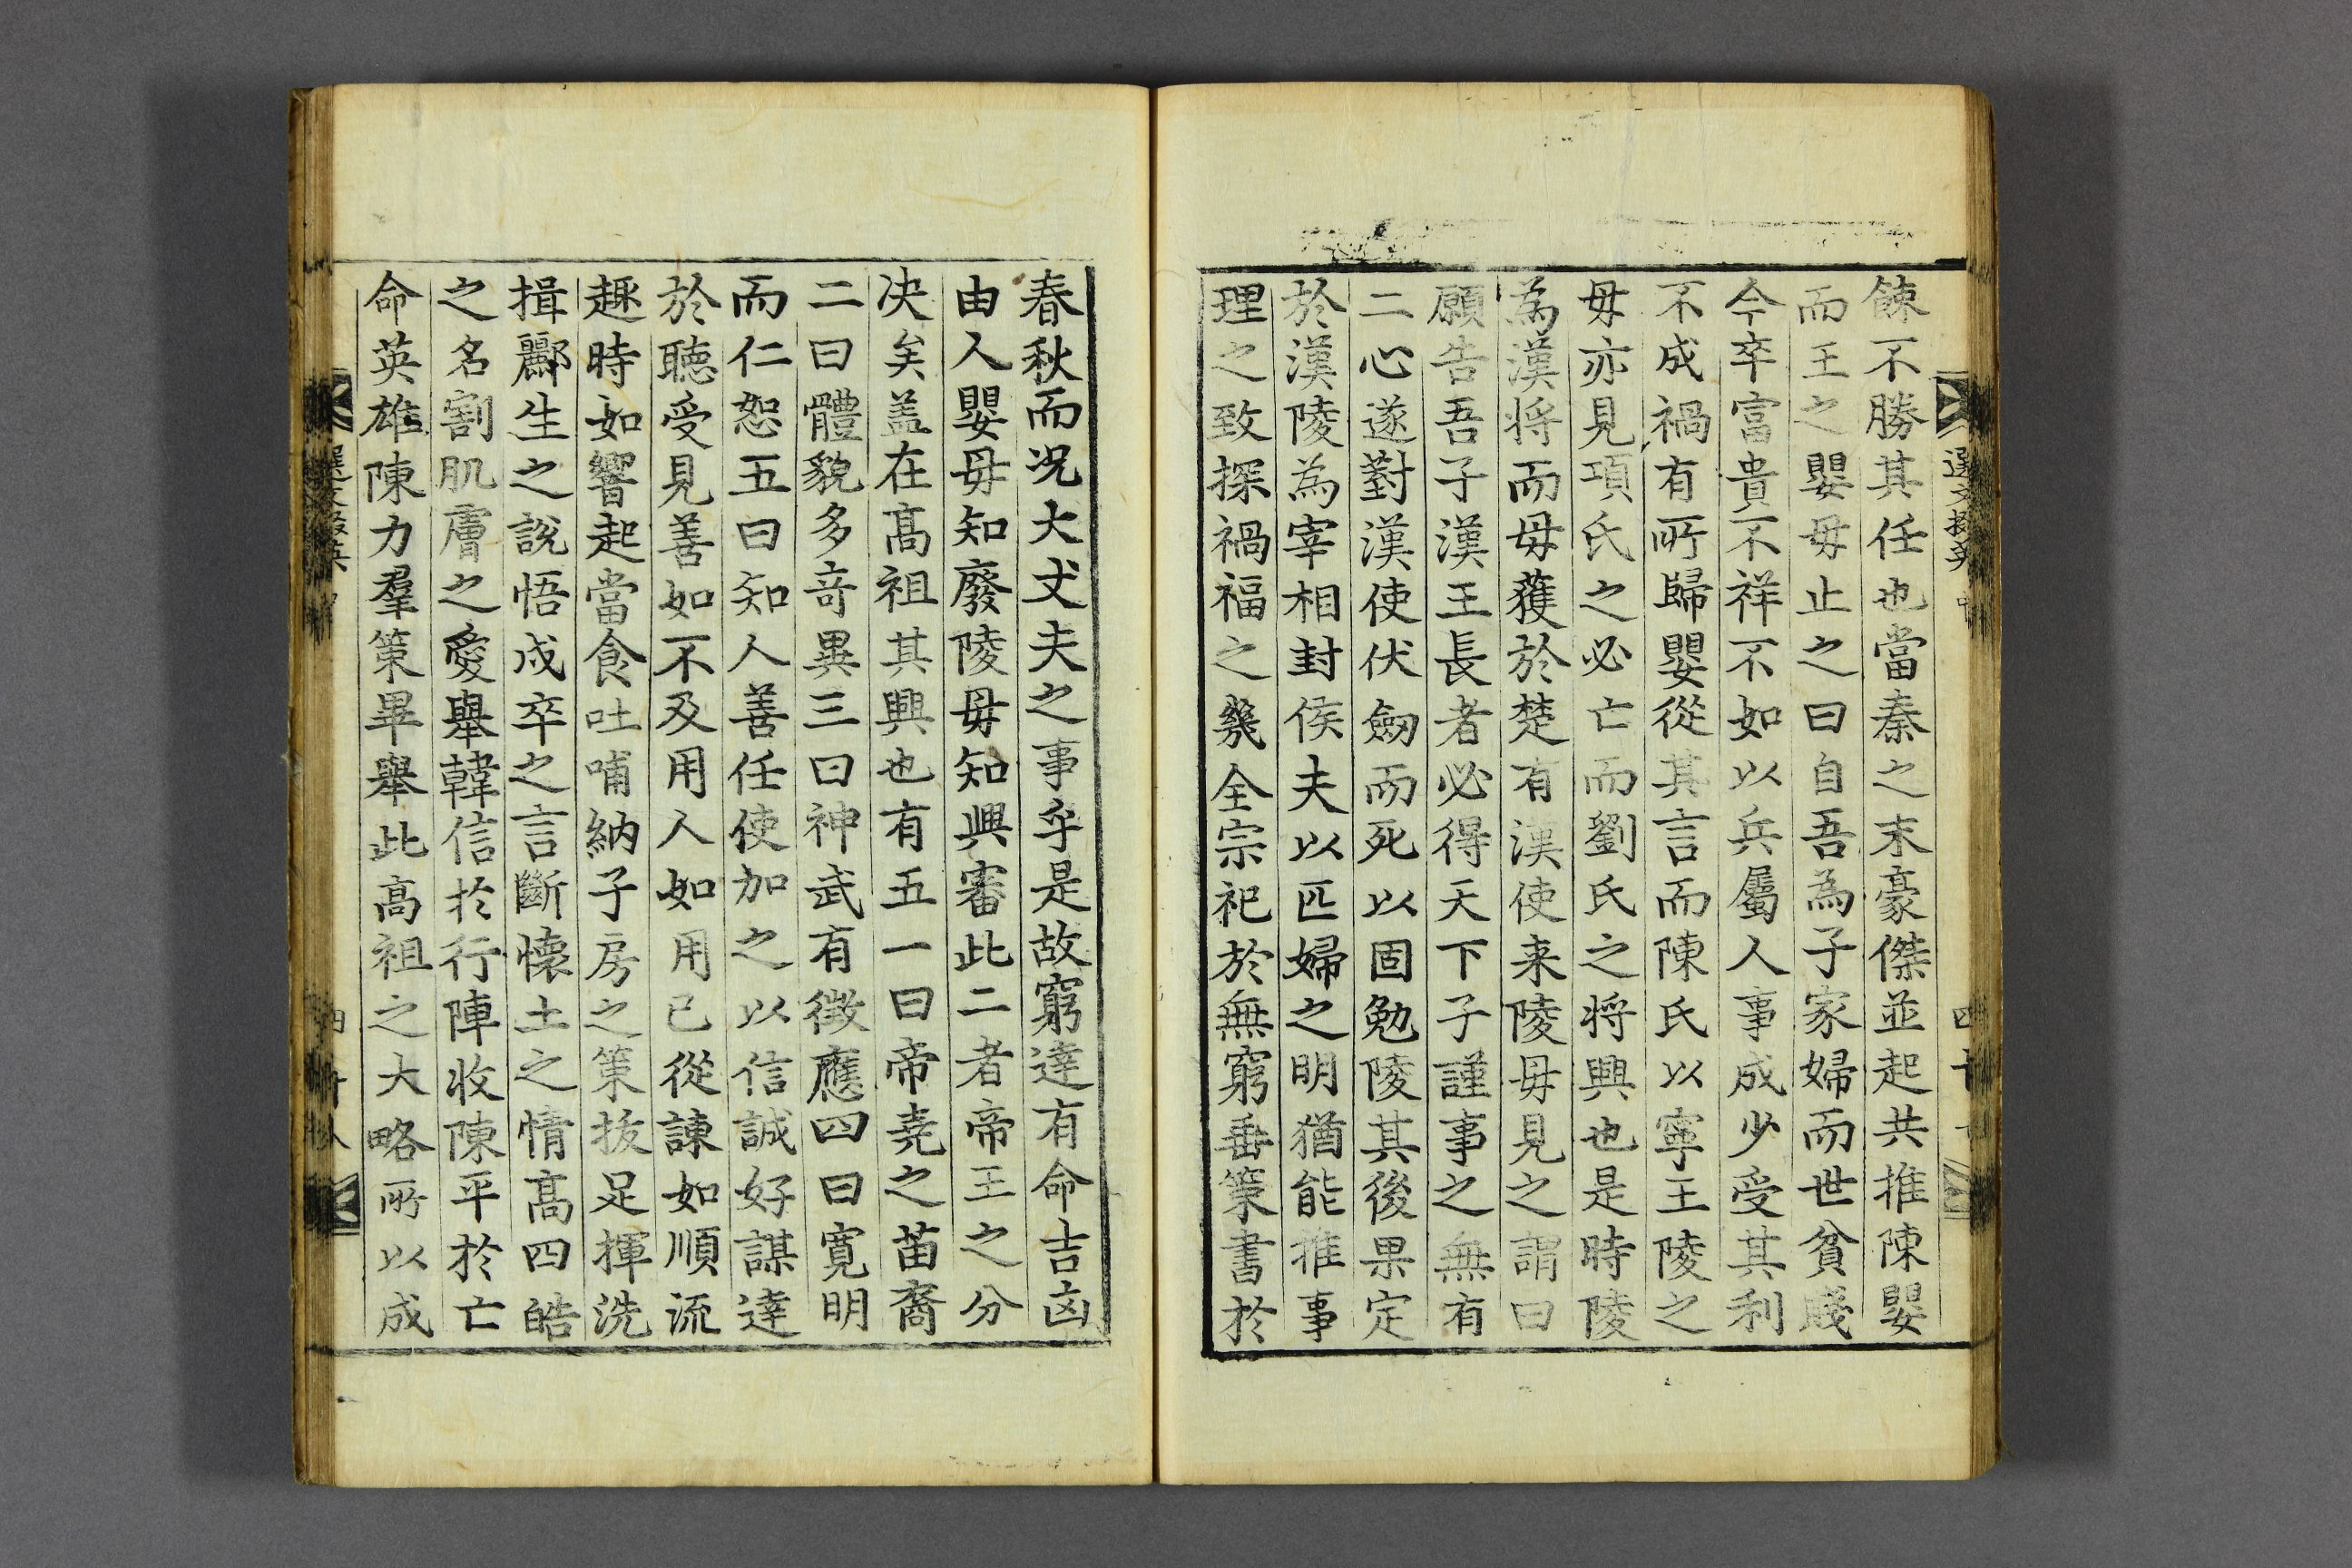 餗不勝其任也當秦之末豪傑並起共推陳嬰
而王之嬰毋止之曰自吾為子家婦而世貧賤
今卒富貴不祥不如以兵屬人事成少受其利
不成禍有所歸嬰從其言而陳氏以寧王陵之
毋亦見項氏之必亡而劉氏之将興也是時陵
為漢将而毋獲於楚有漢使来陵毋見之謂曰
願告吾子漢王長者必得天下子謹事之無有
二心遂對漢使伏劒而死以固勉陵其後果定
於漢陵為宰相封侯夫以匹婦之明猶能推事
理之致探禍福之幾全宗祀於無窮垂策書於
春秋而况大丈夫之事乎是故窮達有命吉凶
由人嬰毋知廢陵毋知興審此二者帝王之分
决矣盖在髙祖其興也有五一曰帝堯之苗裔
二曰體貌多竒異三曰神武有徵應四曰寛明
而仁恕五曰知人善任使加之以信誠好謀達
於聴受見善如不及用人如用已從諫如順流
趣時如響起當食吐哺納子房之策拔足揮洗
揖酈生之說悟戍卒之言斷懐土之情髙四皓
之名割肌膚之愛舉韓信於行陣收陳平於亡
命英雄陳力羣策畢舉此髙祖之大略所以成
選文掇英